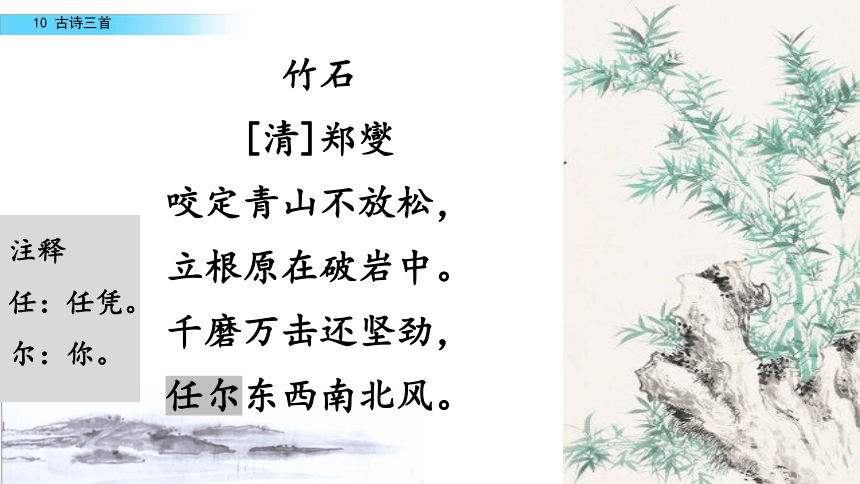 10 古诗三首
竹石
[清]郑燮
咬定青山不放松，
立根原在破岩中。
千磨万击还坚劲，
任尔东西南北风。
注释
任：任凭。
尔：你。